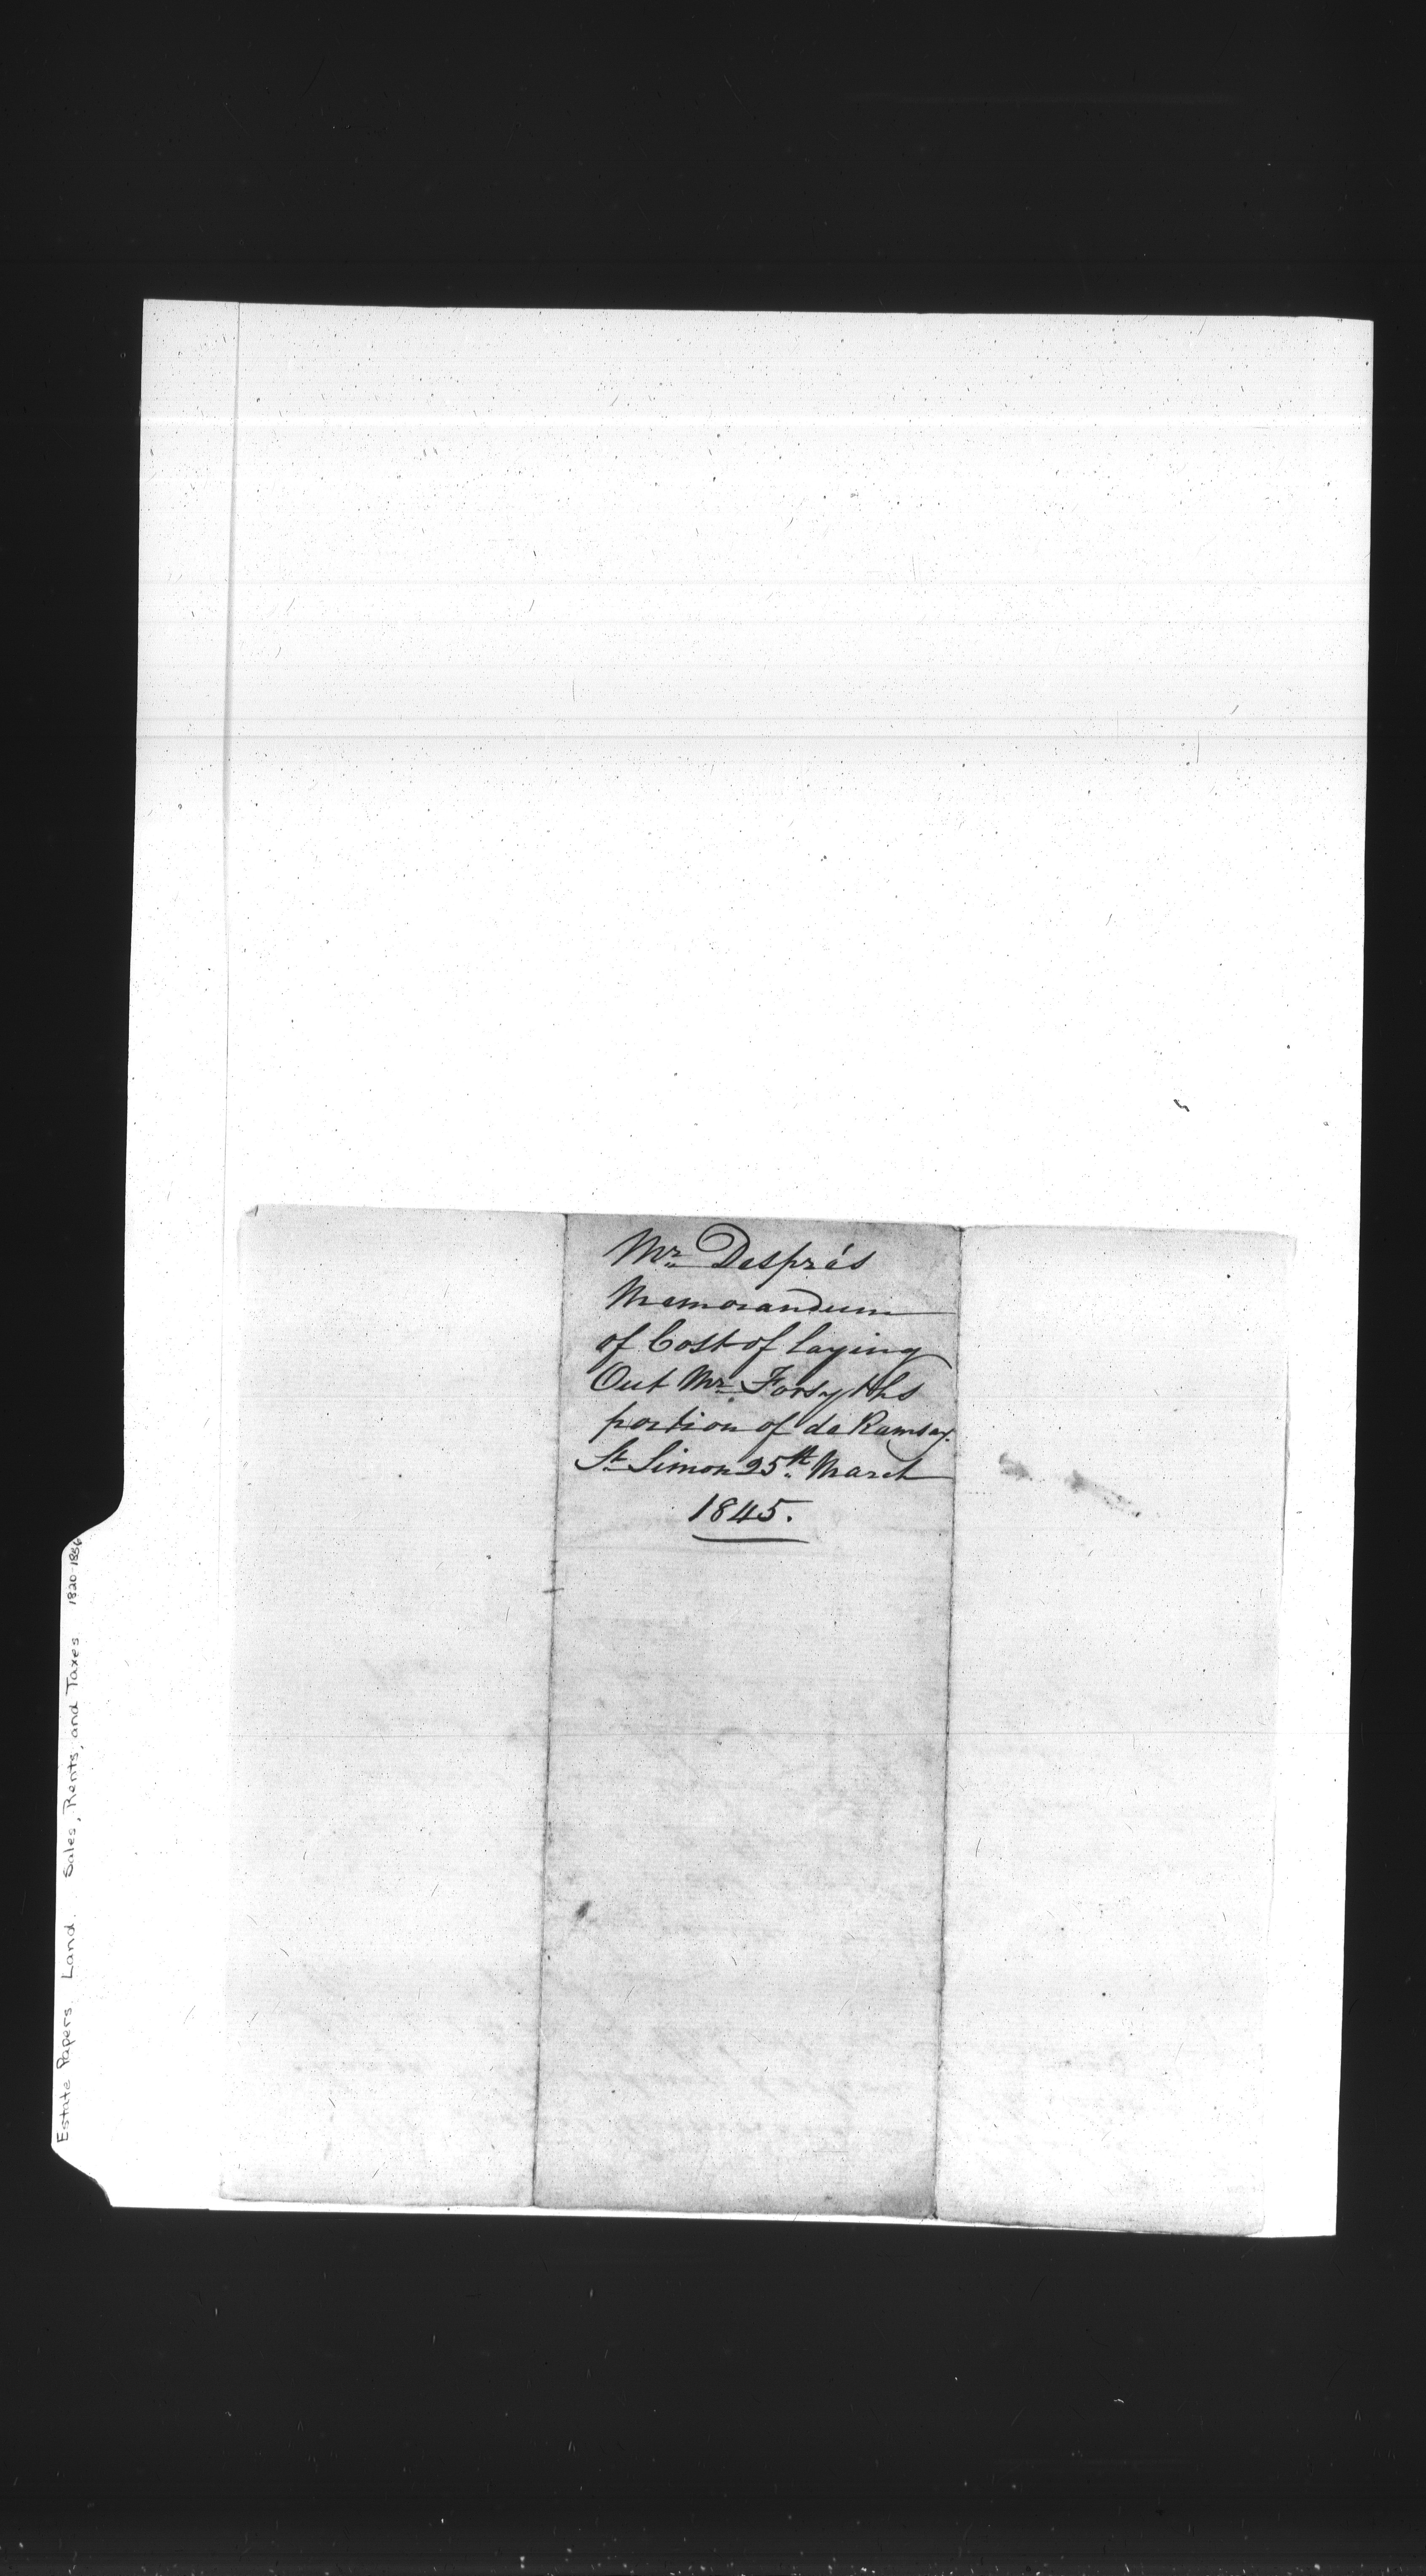 Mr. Després
Memorandum
of Cost of laying
Out Mr. Forsyths
portion of de Ramsay.
St. Simon 25th March
1845.
Estate Papers. Land. Sales, Rents, and Taxes 1820-1856